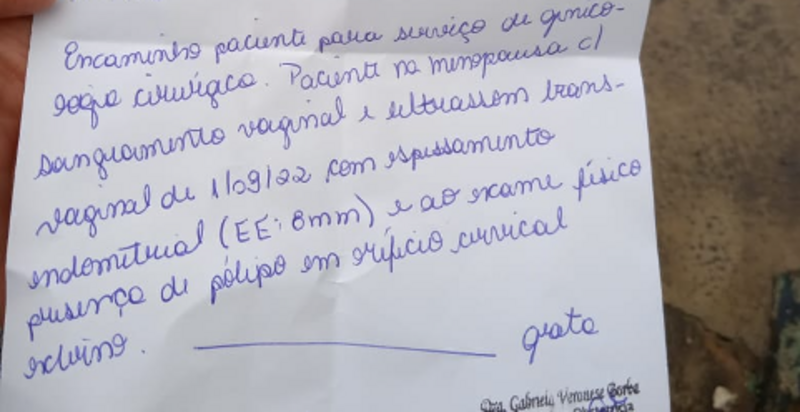 Encaminho paciente para serviço de gineco-
logia cirúrgica. Paciente na menopausa c/
sangramento vaginal e ultrassom trans-
vaginal de 1/09/22 com espessamento
endometrial (EE: 8mm) e ao exame físico
presença de pólipo em orifício cervical
externo.
grata
Dra. Gabriela Veronese Borba